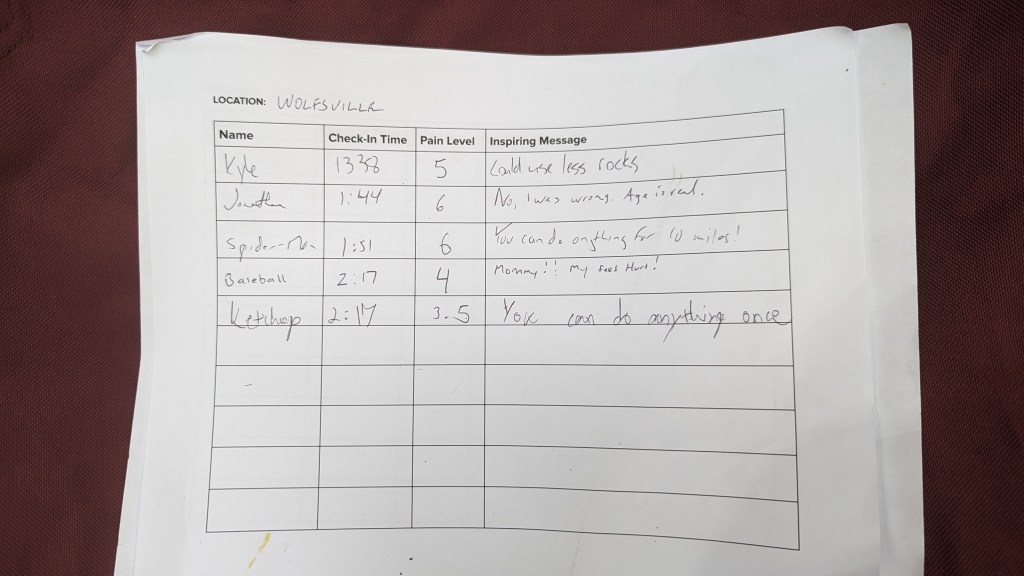 LOCATION: WOLFSVILLE
Name Check-In Time Pain Level Inspiring Message
Kyle 1338 5 Could use less rocks
Jonathan 1:44 6 No, I was wrong. Age is real.
Spider-Man 1:51 6 You can do anything for 10 miles!
Baseball 2:17 4 Mommy!! My feet Hurt!
Ketchup 2:17 3.5 You can do anything once